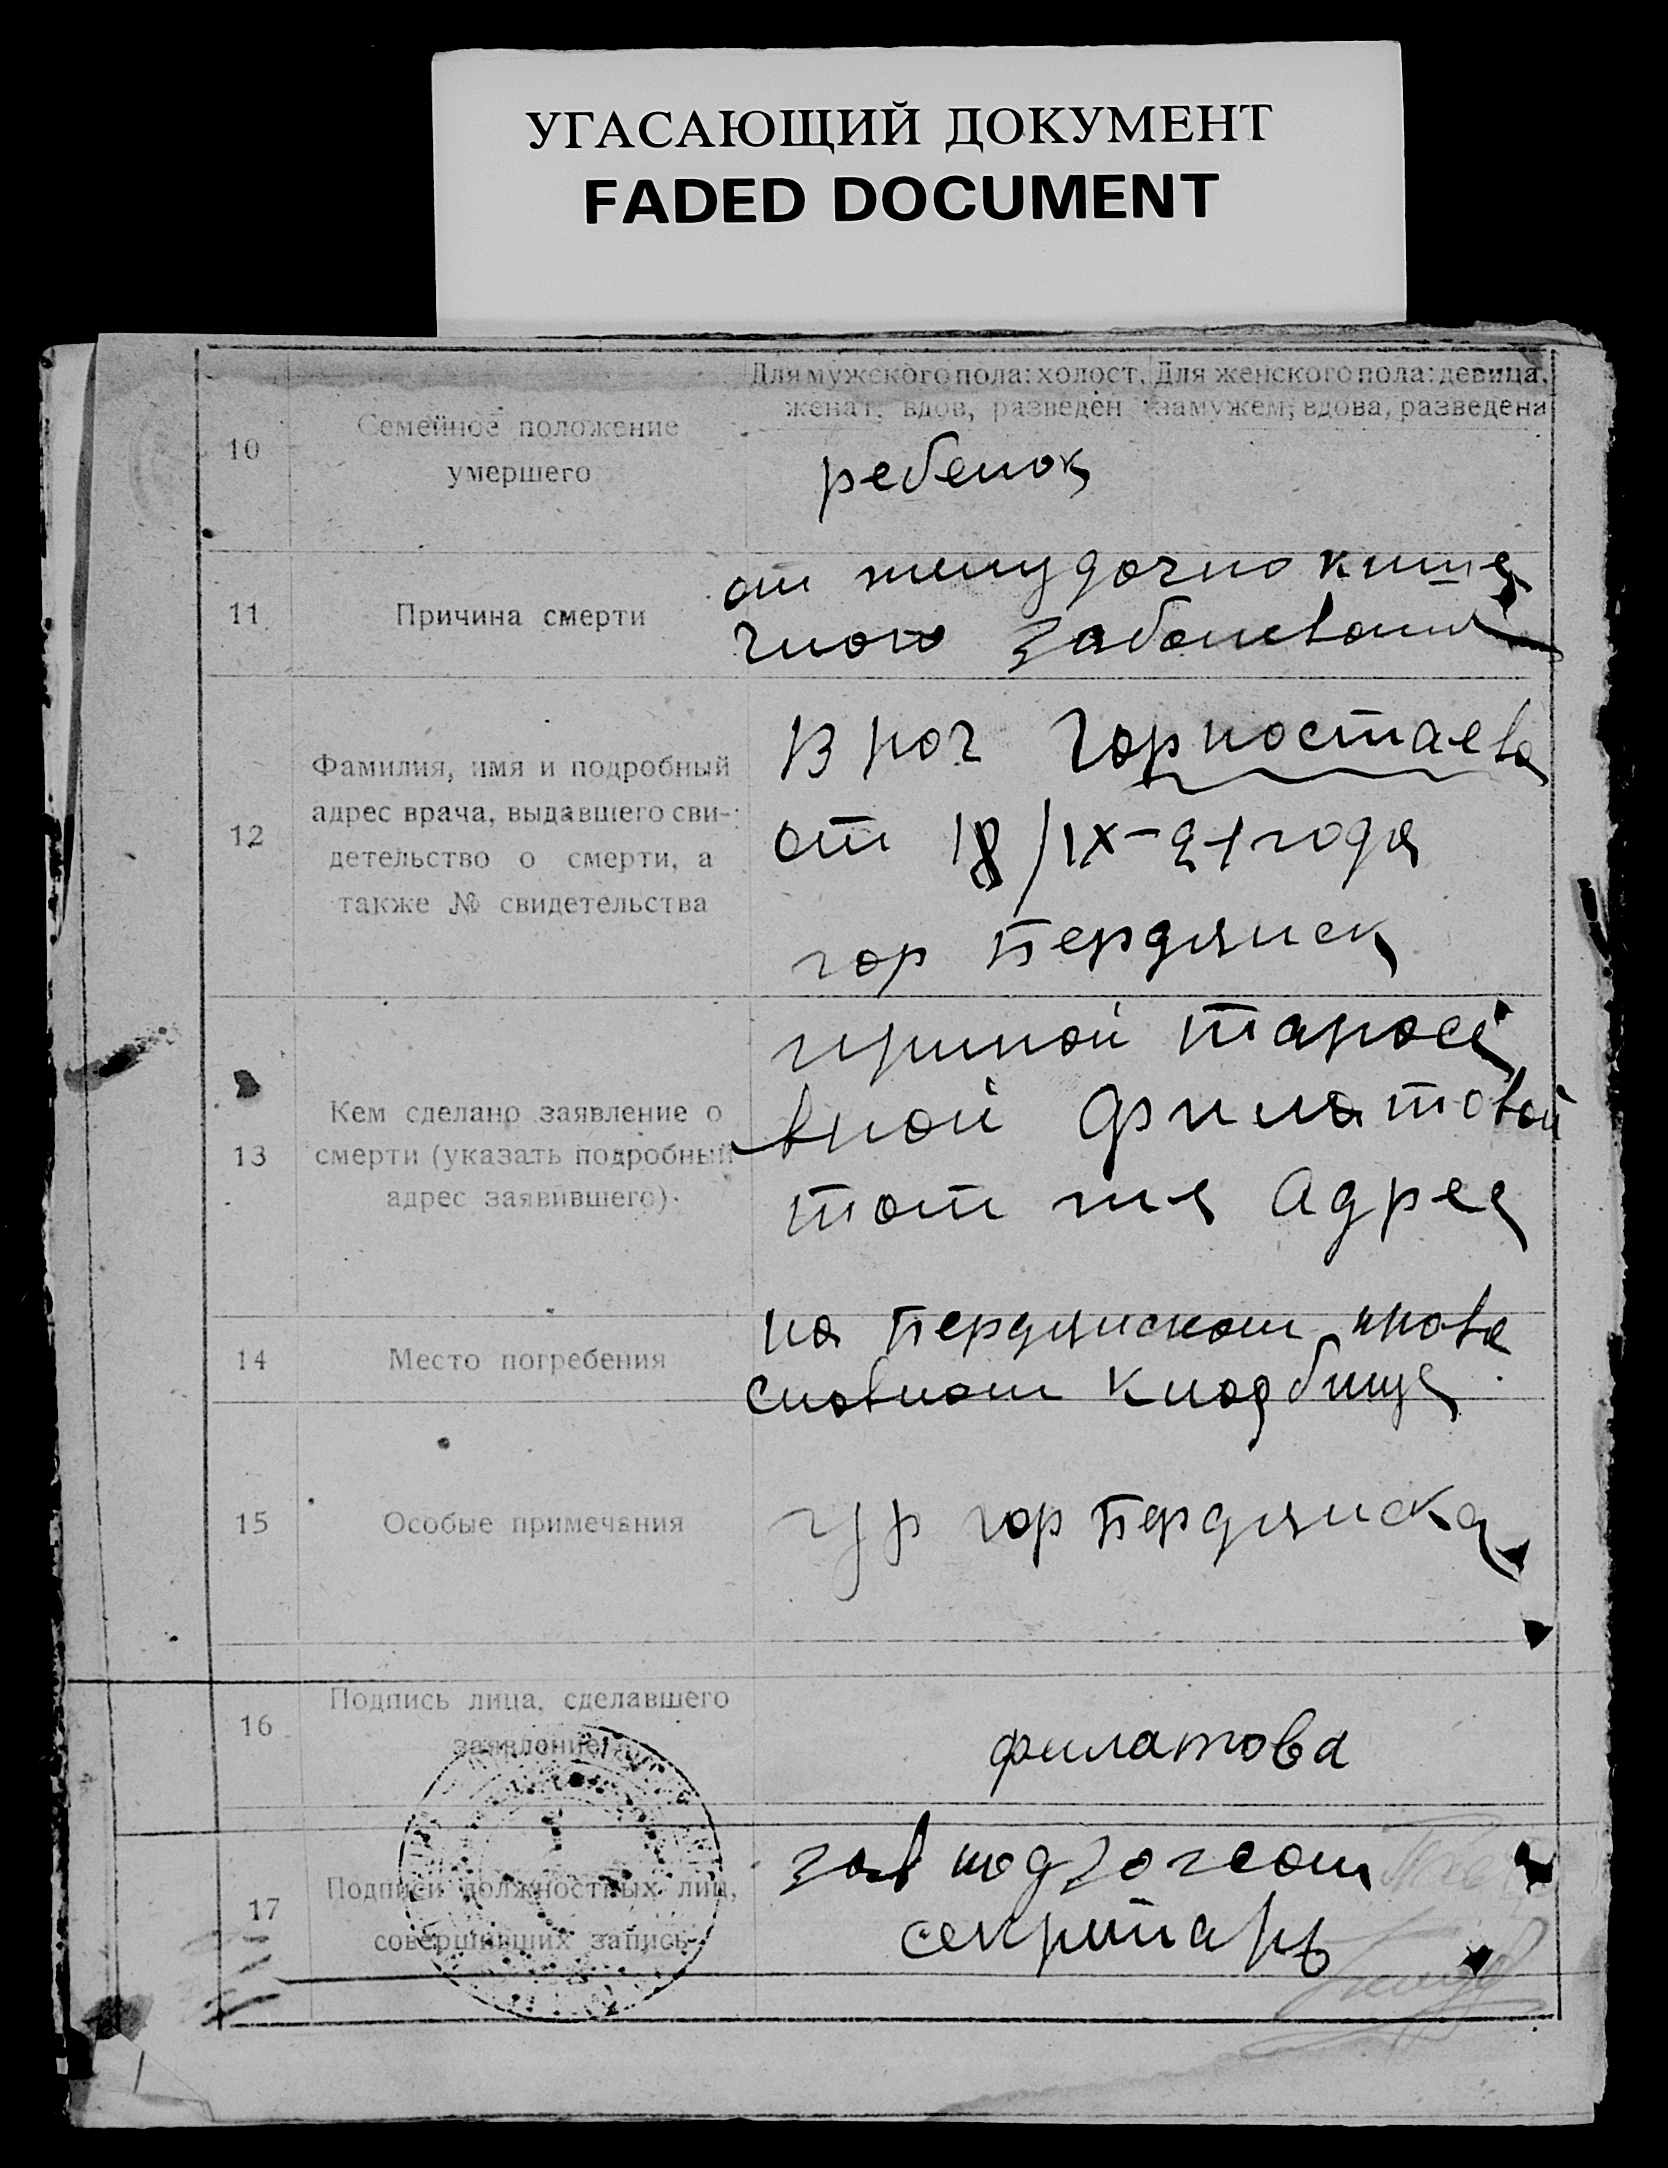 УГАСАЮЩИЙ ДОКУМЕНТ
FADED DOCUMENT
Для мужского пола: холост, женат, вдов, разведен
Для женского пола: девица, замужем, вдова, разведена
10
Семейное положение
умершего
ребенок
11
Причина смерти
от желудочно кише
чного заболевания
12
Фамилия, имя и подробный
адрес врача, выдавшего сви-
детельство о смерти, а
также № свидетельства
Врач Горностаева
от 18/IX-21 года
гор Бердянск
13
Кем сделано заявление о
смерти (указать подробный
адрес заявившего)
ириной Тарасе
вной Филатовой
тот же адрес
14
Место погребения
на Бердянском право
славном кладбище
15
Особые примечания
гр гор Бердянска
16
Подпись лица, сделавшего
заявление
филатова
17
Подписи должностных лиц,
совершивших запись
зав подзагсом
секритарь